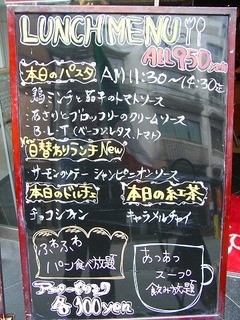 LUNCH MENU
ALL 950yen
本日のパスタ AM11:30～14:30迄
・鶏ミンチと茄子のトマトソース
・あさりとブロッコリーのクリームソース
・B・L・T (ベーコン・レタス・トマト)
日替わりランチ New
サーモンのソテー シャンピニオンソース
本日のドルチェ
本日の紅茶
チョコシフォン
キャラメルチャイ
ふわふわ
パン食べ放題
あっあつ
スープ
飲み放題
アフタードリンク
各100yen